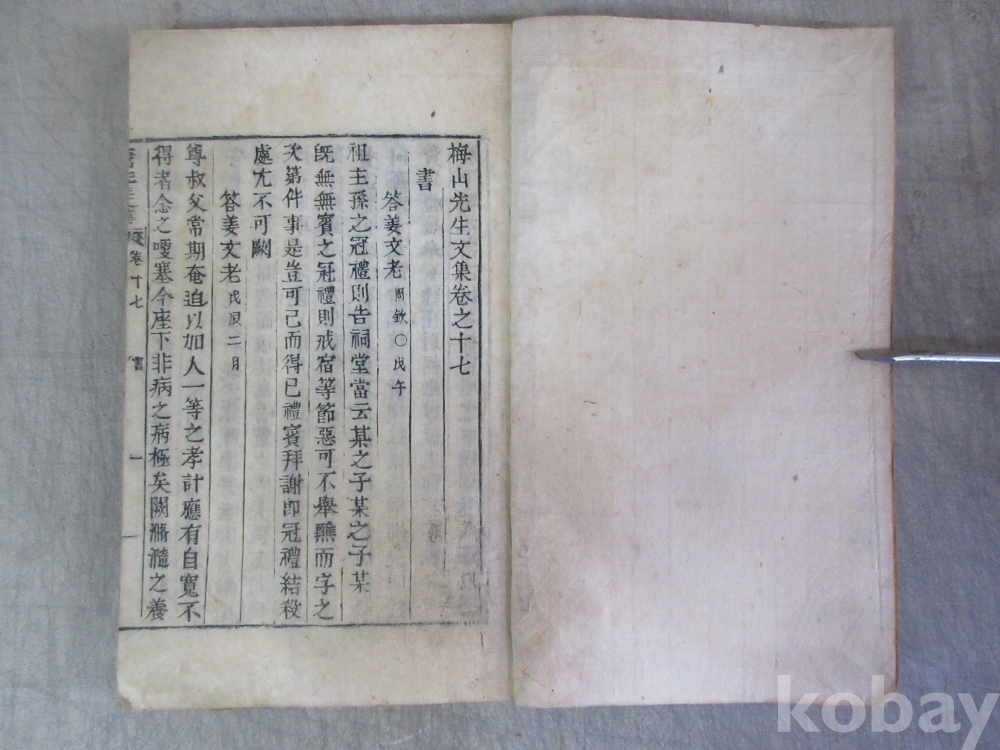 梅山先生文集卷之十七
書
答姜文老 周欽○戊午
祖主孫之冠禮則告祠堂當云某之子某之子某
旣無無賓之冠禮則戒宿等節惡可不擧醮而字之
次第件事是豈可已而得已禮賓拜謝卽冠禮結殺
處尤不可闕
答姜文老 戊辰二月
尊叔父常期奄迫以如人一等之孝計應有自寬不
得者念之哽塞今座下非病之病極矣闕滫瀡之養
卷十七 書 一
kobay